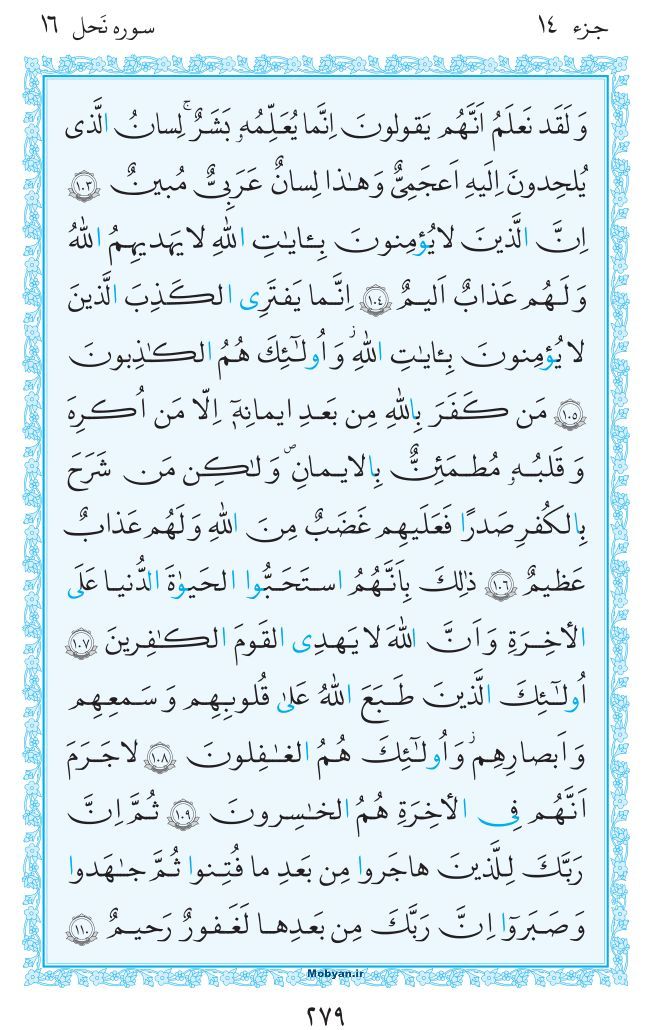 جزء ١٤
سوره نَحل ١٦
وَ لَقَد نَعلَمُ اَنَّهُم يَقولونَ اِنَّما يُعَلِّمُهُۥ بَشَرٌ ۚ لِسانُ الَّذى
يُلحِدونَ اِلَيهِ اَعجَمِىٌّ وَ هٰذا لِسانٌ عَرَبِىٌّ مُبينٌ ١٠٣
اِنَّ الَّذينَ لا يُؤمِنونَ بِـٔايٰتِ اللهِ لا يَهديهِمُ اللهُ
وَ لَهُم عَذابٌ اَليمٌ ١٠٤ اِنَّما يَفتَرِى الكَذِبَ الَّذينَ
لا يُؤمِنونَ بِـٔايٰتِ اللهِ ۖ وَ اُولٰٓئِكَ هُمُ الكٰذِبونَ
١٠٥ مَن كَفَرَ بِاللهِ مِن بَعدِ ايمانِهٓ اِلّا مَن اُكرِهَ
وَ قَلبُهُۥ مُطمَئِنٌّ بِالايمانِ وَ لٰكِن مَن شَرَحَ
بِالكُفرِ صَدرًا فَعَلَيهِم غَضَبٌ مِنَ اللهِ وَ لَهُم عَذابٌ
عَظيمٌ ١٠٦ ذٰلِكَ بِاَنَّهُمُ استَحَبُّوا الحَيوٰةَ الدُّنيا عَلَى
الأخِرَةِ وَ اَنَّ اللهَ لا يَهدِى القَومَ الكٰفِرينَ ١٠٧
اُولٰٓئِكَ الَّذينَ طَبَعَ اللهُ عَلىٰ قُلوبِهِم وَ سَمعِهِم
وَ اَبصارِهِم ۖ وَ اُولٰٓئِكَ هُمُ الغٰفِلونَ ١٠٨ لا جَرَمَ
اَنَّهُم فِى الأخِرَةِ هُمُ الخٰسِرونَ ١٠٩ ثُمَّ اِنَّ
رَبَّكَ لِلَّذينَ هاجَروا مِن بَعدِ ما فُتِنوا ثُمَّ جٰهَدوا
وَ صَبَرَوٓا اِنَّ رَبَّكَ مِن بَعدِها لَغَفورٌ رَحيمٌ ١١٠
Mobyan.ir
٢٧٩